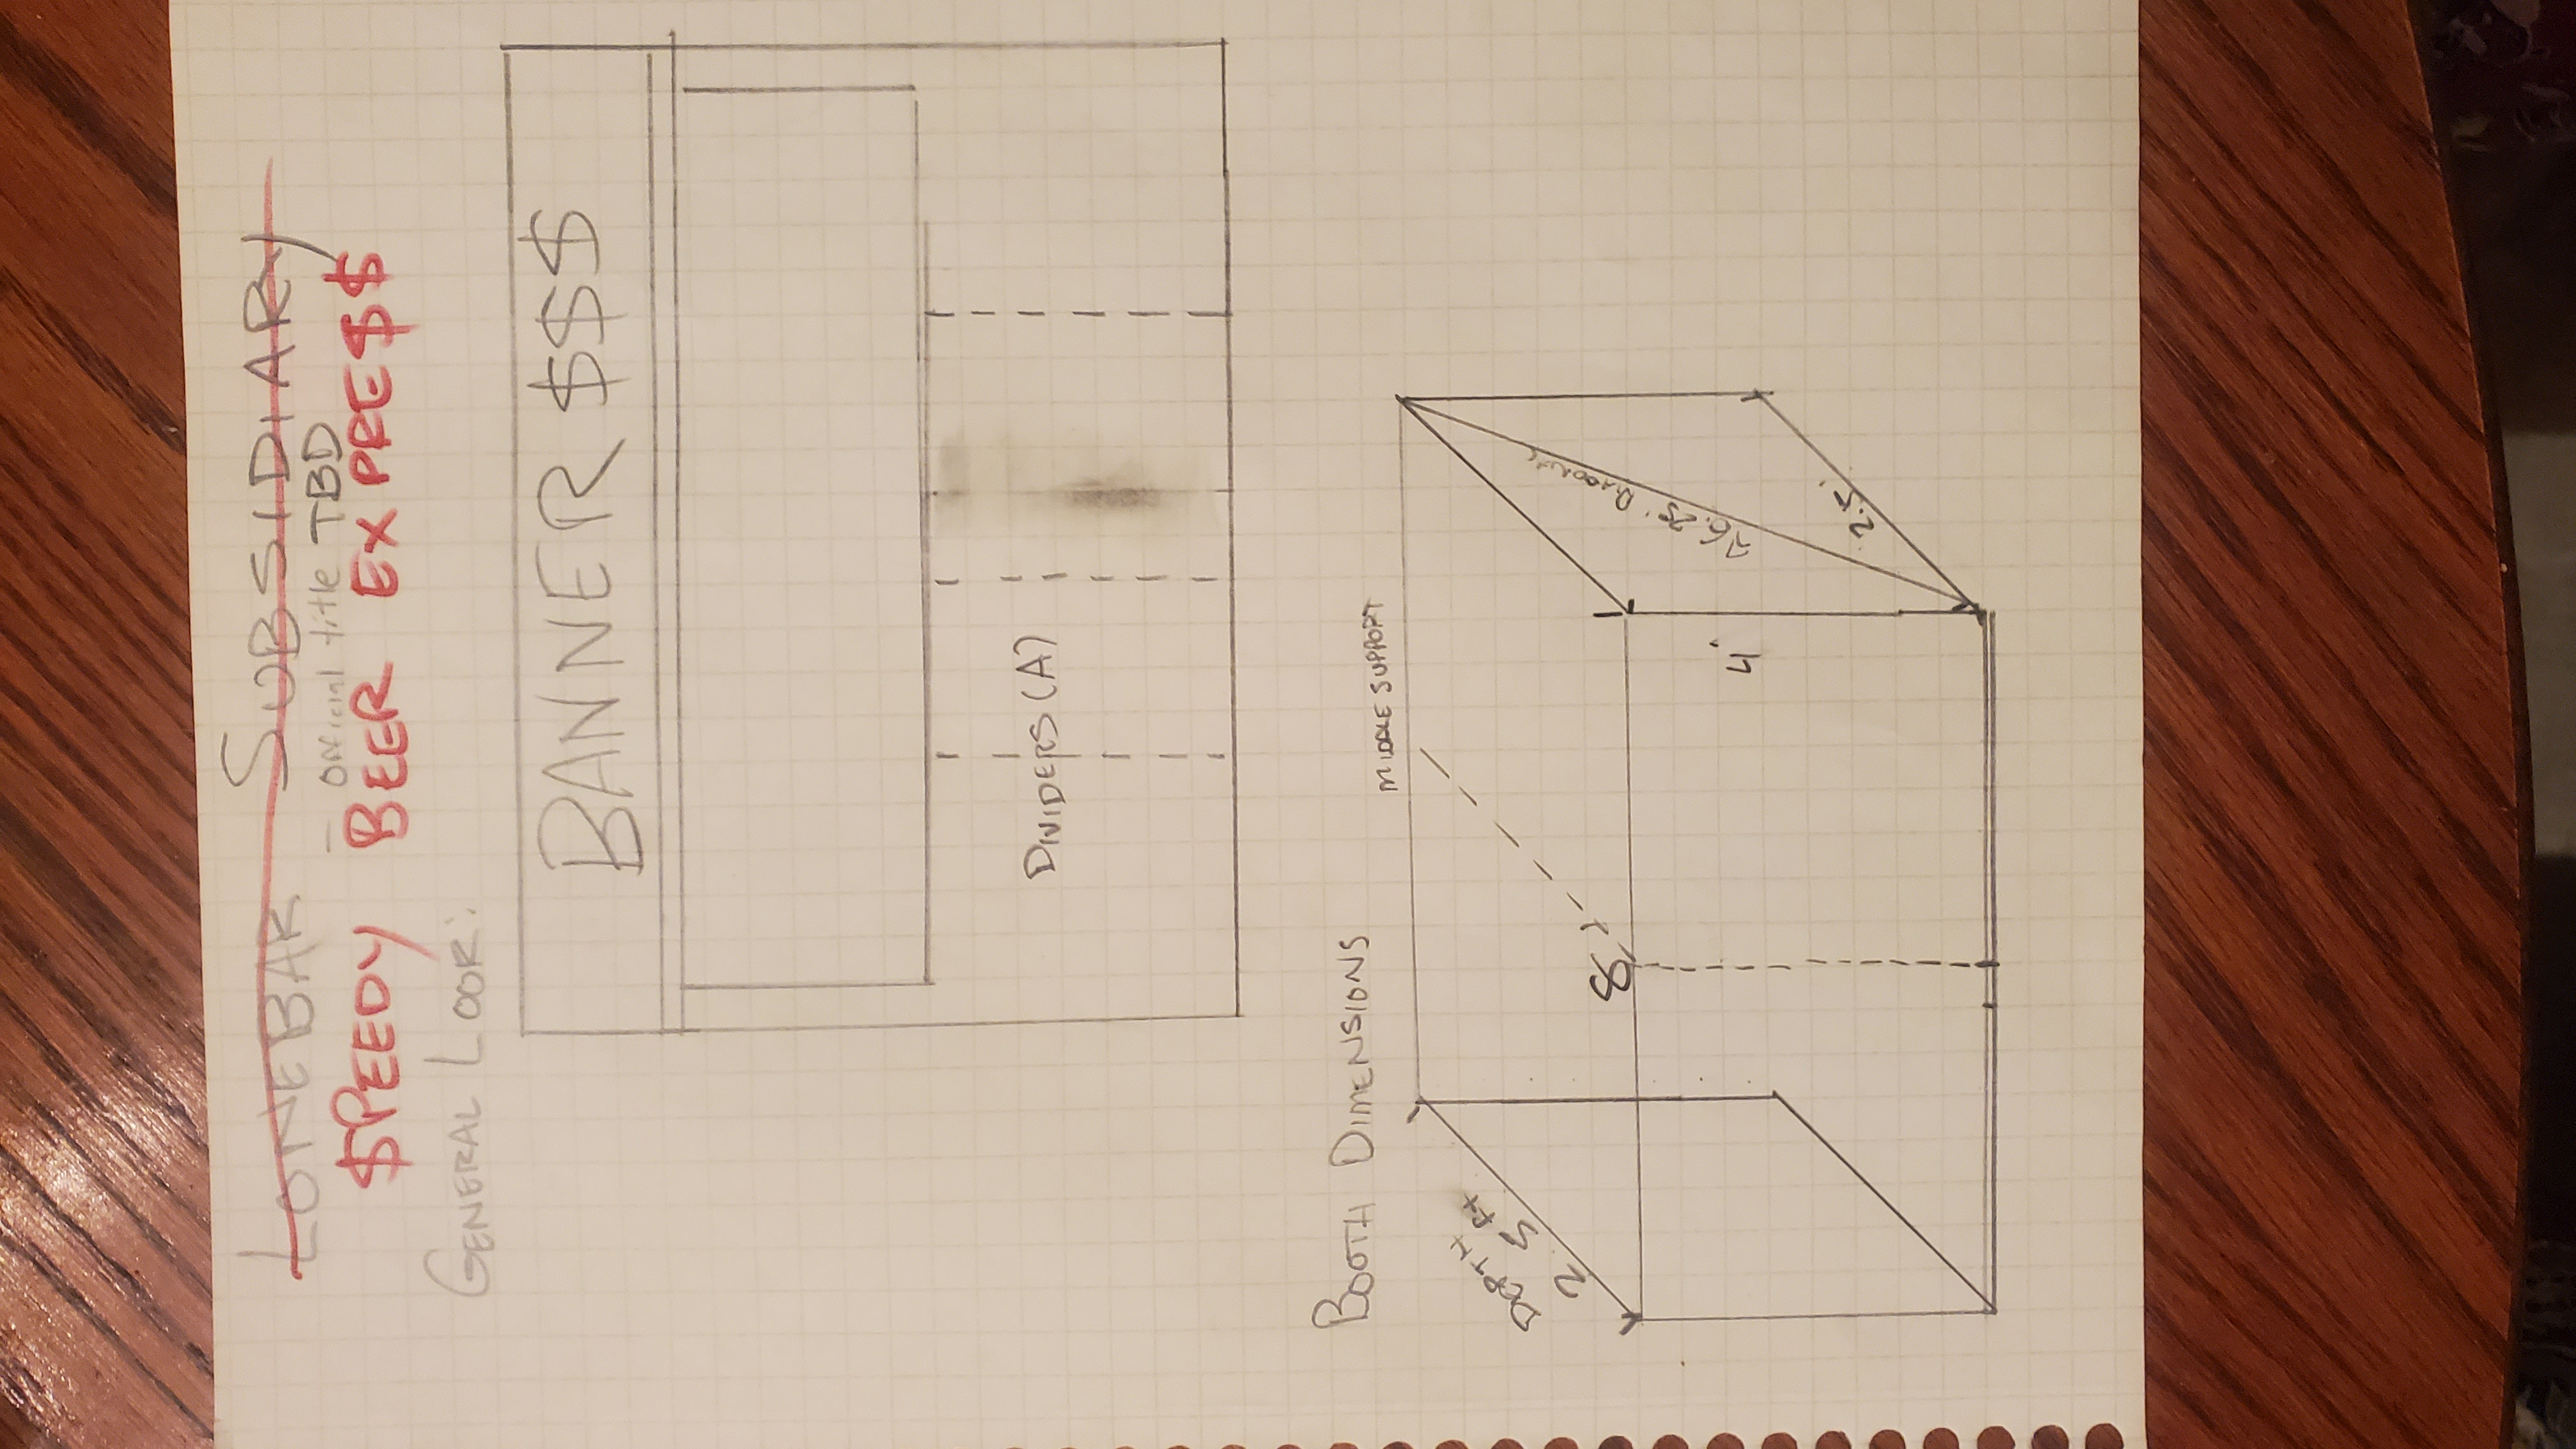 LONEBAR SUBSIDIARY
- Official title TBD
$PEEDY BEER EXPRE$$
GENERAL LOOK:
BANNER $$$
DIVIDERS (A)
BOOTH DIMENSIONS
MIDDLE SUPPORT
DEPTH
2.5 ft
8'
4'
6.25' DIAGONAL
2.5'